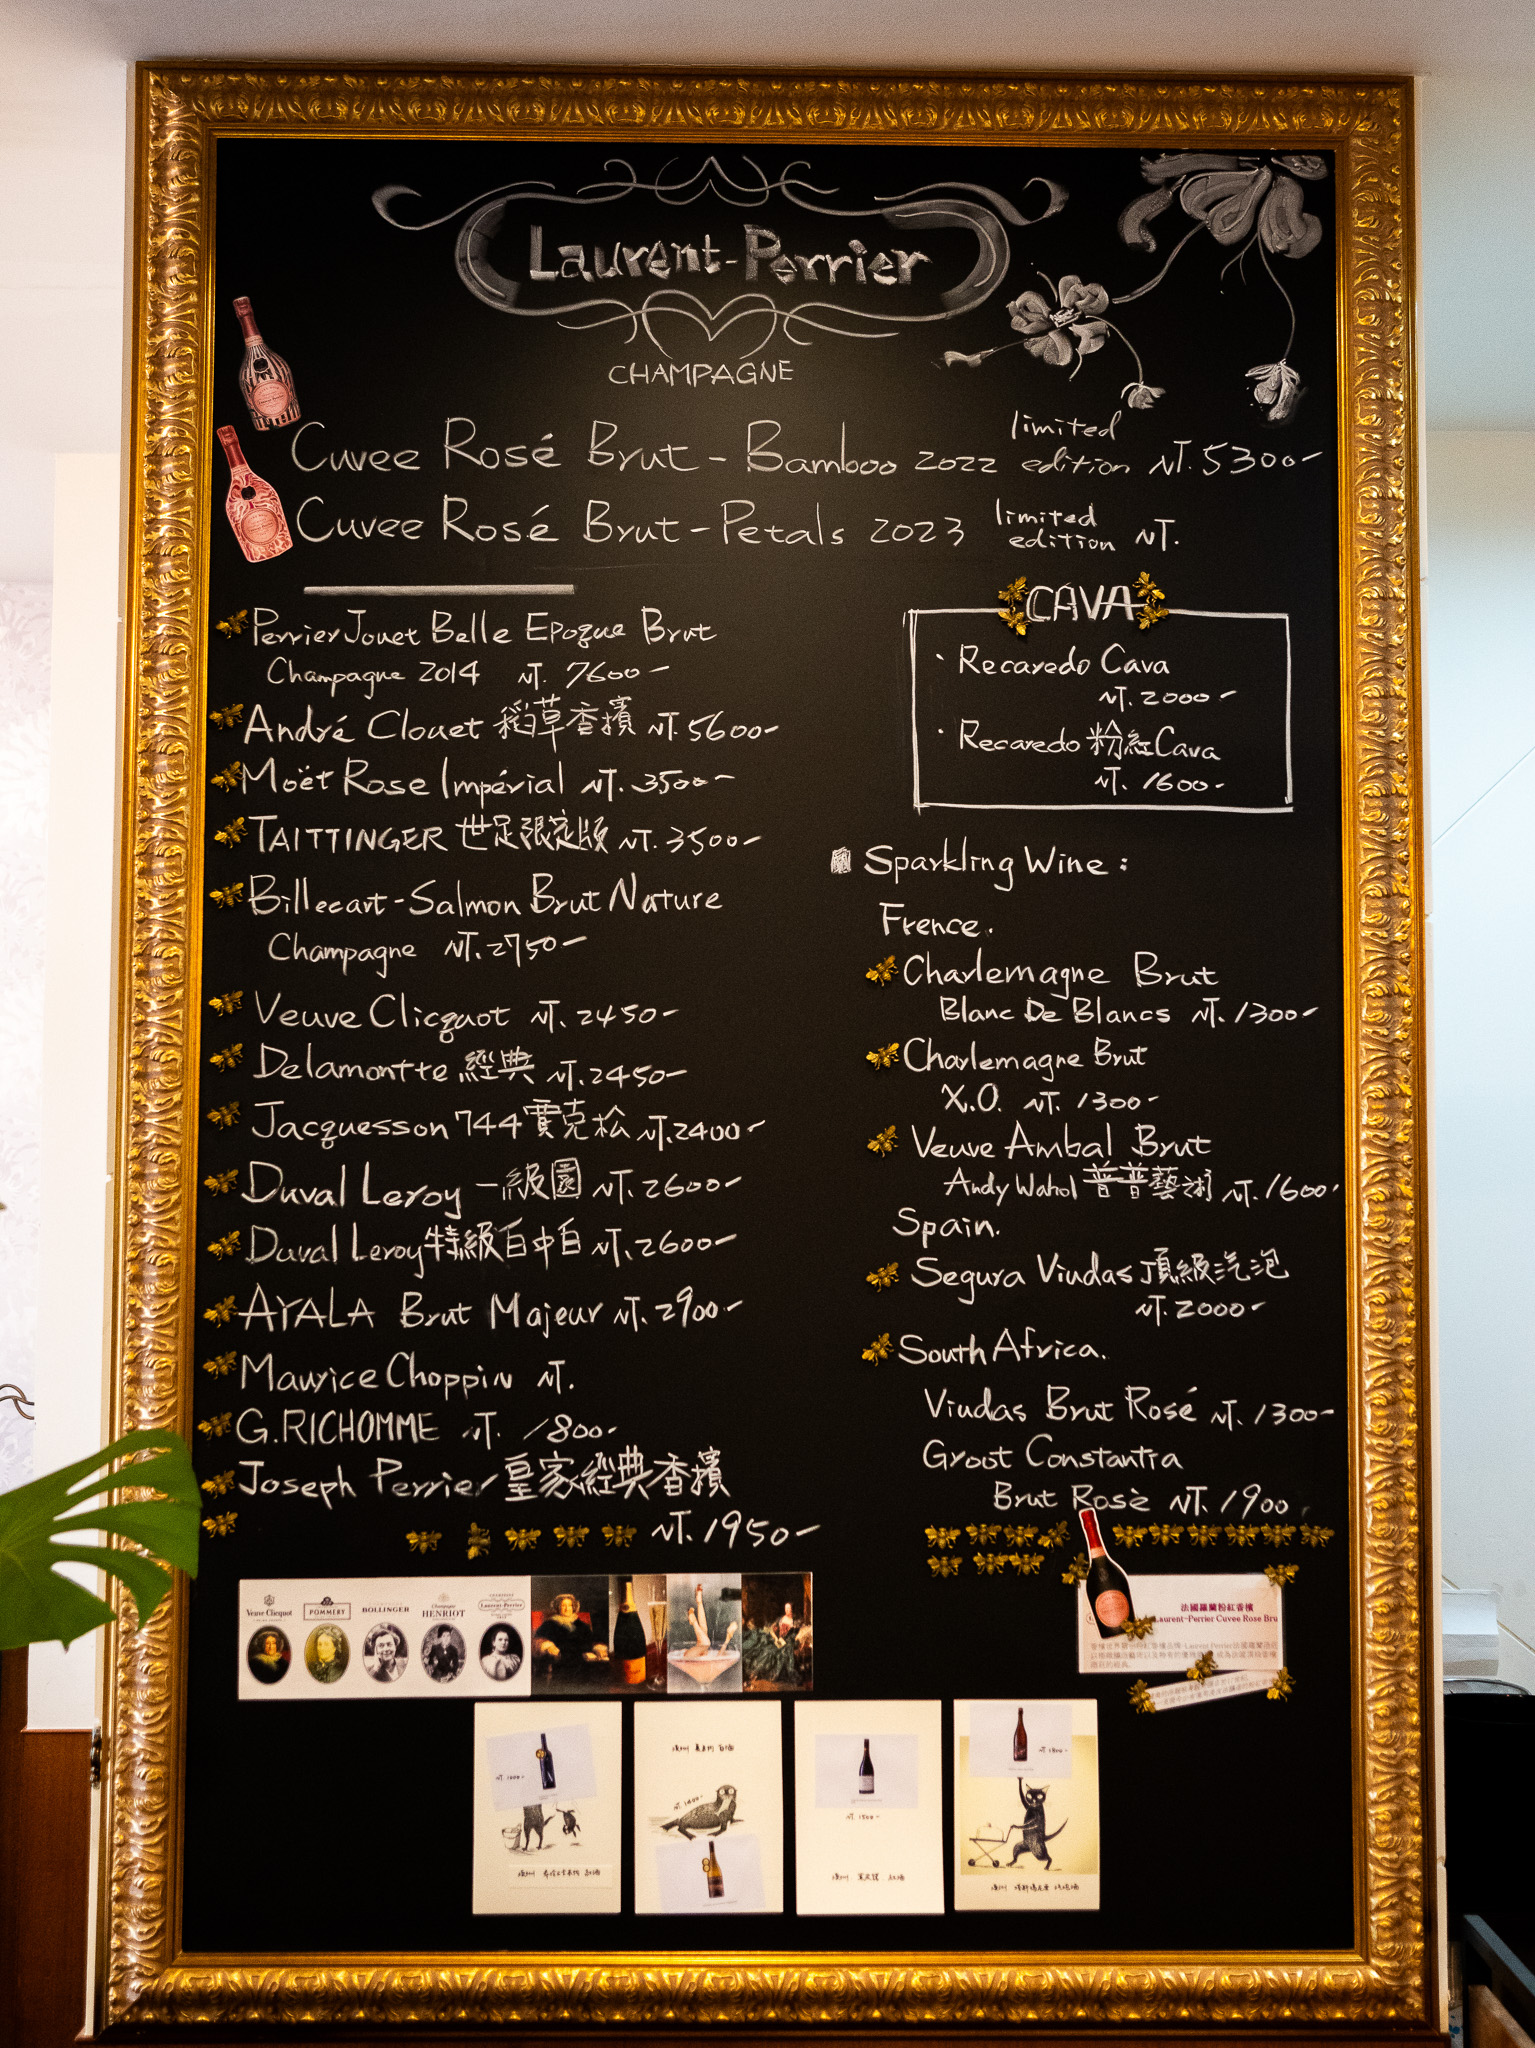 Laurent-Perrier
CHAMPAGNE
Cuvee Rosé Brut - Bamboo 2022 limited edition NT. 5300-
Cuvee Rosé Brut - Petals 2023 limited edition NT.
Perrier Jouet Belle Epoque Brut
Champagne 2014 NT. 7600-
André Clouet 稻草香擯 NT. 5600-
Moët Rose Impérial NT. 3500-
TAITTINGER 世足限定版 NT. 3500-
Billecart-Salmon Brut Nature
Champagne NT. 2750-
Veuve Clicquot NT. 2450-
Delamontte 經典 NT. 2450-
Jacquesson 744 賈克松 NT. 2400-
Duval Leroy 一級園 NT. 2600-
Duval Leroy 特級白中白 NT. 2600-
AYALA Brut Majeur NT. 2900-
Maurice Choppin NT.
G.RICHOMME NT. 1800-
Joseph Perrier 皇家經典香擯
NT. 1950-
CAVA
· Recaredo Cava
NT. 2000-
· Recaredo 粉紅 Cava
NT. 1600-
Sparkling Wine :
Frence.
Charlemagne Brut
Blanc De Blancs NT. 1300-
Charlemagne Brut
X.O. NT. 1300-
Veuve Ambal Brut
Andy Wahol 普普藝術 NT. 1600-
Spain.
Segura Viudas 頂級汽泡
NT. 2000-
South Africa.
Viudas Brut Rosé NT. 1300-
Groot Constantia
Brut Rosè NT. 1900
Veuve Clicquot
POMMERY
BOLLINGER
Champagne
HENRIOT
Laurent-Perrier
法國羅蘭粉紅香檳
Laurent-Perrier Cuvee Rose Bru
NT. 1800-
NT. 1500-